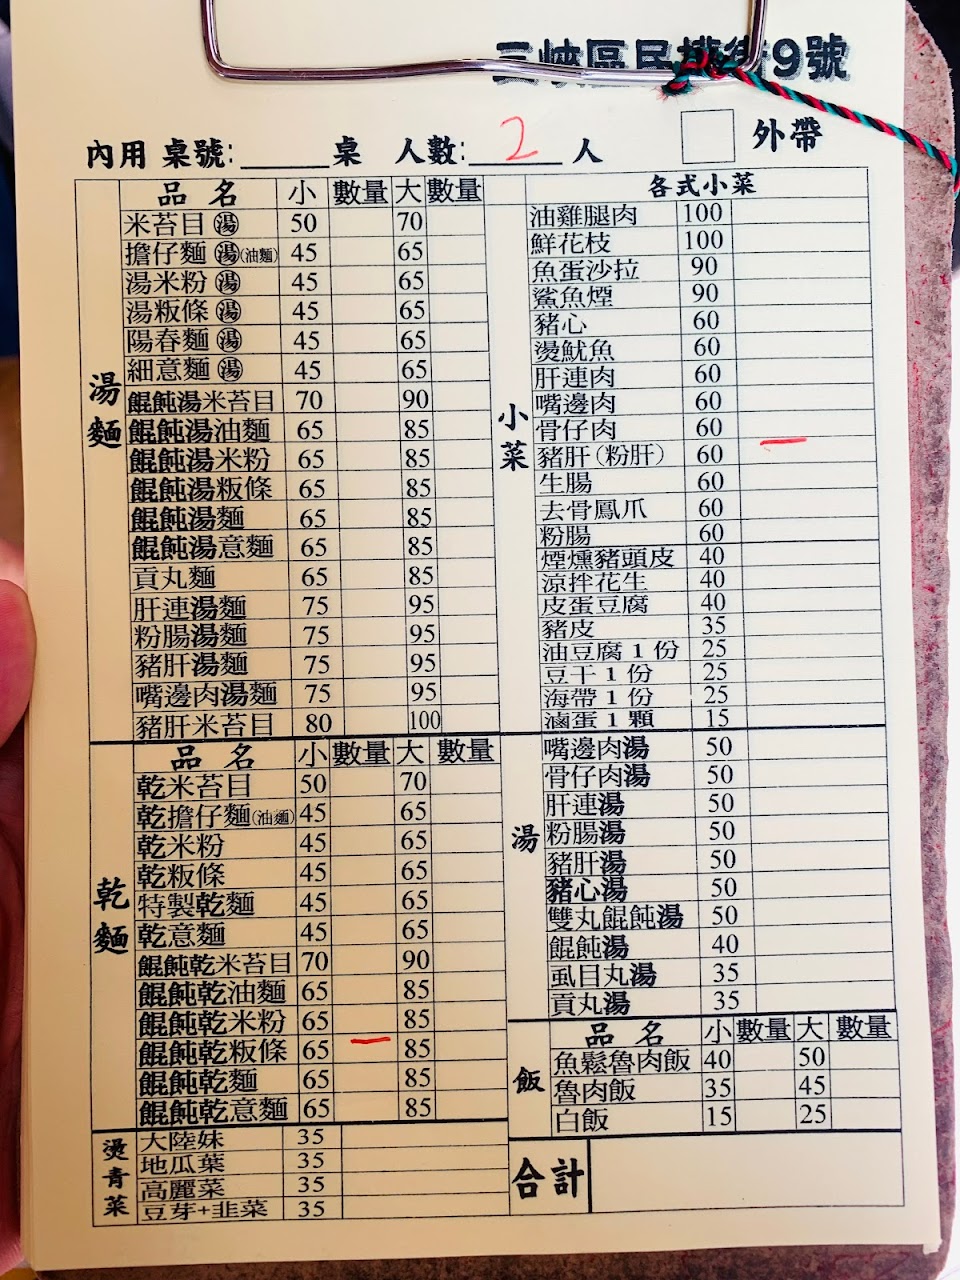 三峽區民權街9號
內用 桌號:______桌 人數: 2 人 □ 外帶
湯麵
品名 小 數量 大 數量
米苔目 湯 50 70
擔仔麵 湯(油麵) 45 65
湯米粉 湯 45 65
湯粄條 湯 45 65
陽春麵 湯 45 65
細意麵 湯 45 65
餛飩湯米苔目 70 90
餛飩湯油麵 65 85
餛飩湯米粉 65 85
餛飩湯粄條 65 85
餛飩湯麵 65 85
餛飩湯意麵 65 85
貢丸麵 65 85
肝連湯麵 75 95
粉腸湯麵 75 95
豬肝湯麵 75 95
嘴邊肉湯麵 75 95
豬肝米苔目 80 100
乾麵
品名 小 數量 大 數量
乾米苔目 50 70
乾擔仔麵(油麵) 45 65
乾米粉 45 65
乾粄條 45 65
特製乾麵 45 65
乾意麵 45 65
餛飩乾米苔目 70 90
餛飩乾油麵 65 85
餛飩乾米粉 65 85
餛飩乾粄條 65 一 85
餛飩乾麵 65 85
餛飩乾意麵 65 85
燙青菜
大陸妹 35
地瓜葉 35
高麗菜 35
豆芽+韭菜 35
小菜
各式小菜
油雞腿肉 100
鮮花枝 100
魚蛋沙拉 90
鯊魚煙 90
豬心 60
燙魷魚 60
肝連肉 60
嘴邊肉 60
骨仔肉 60
豬肝(粉肝) 60 一
生腸 60
去骨鳳爪 60
粉腸 60
煙燻豬頭皮 40
涼拌花生 40
皮蛋豆腐 40
豬皮 35
油豆腐 1 份 25
豆干 1 份 25
海帶 1 份 25
滷蛋 1 顆 15
湯
嘴邊肉湯 50
骨仔肉湯 50
肝連湯 50
粉腸湯 50
豬肝湯 50
豬心湯 50
雙丸餛飩湯 50
餛飩湯 40
虱目丸湯 35
貢丸湯 35
飯
品名 小 數量 大 數量
魚鬆魯肉飯 40 50
魯肉飯 35 45
白飯 15 25
合計